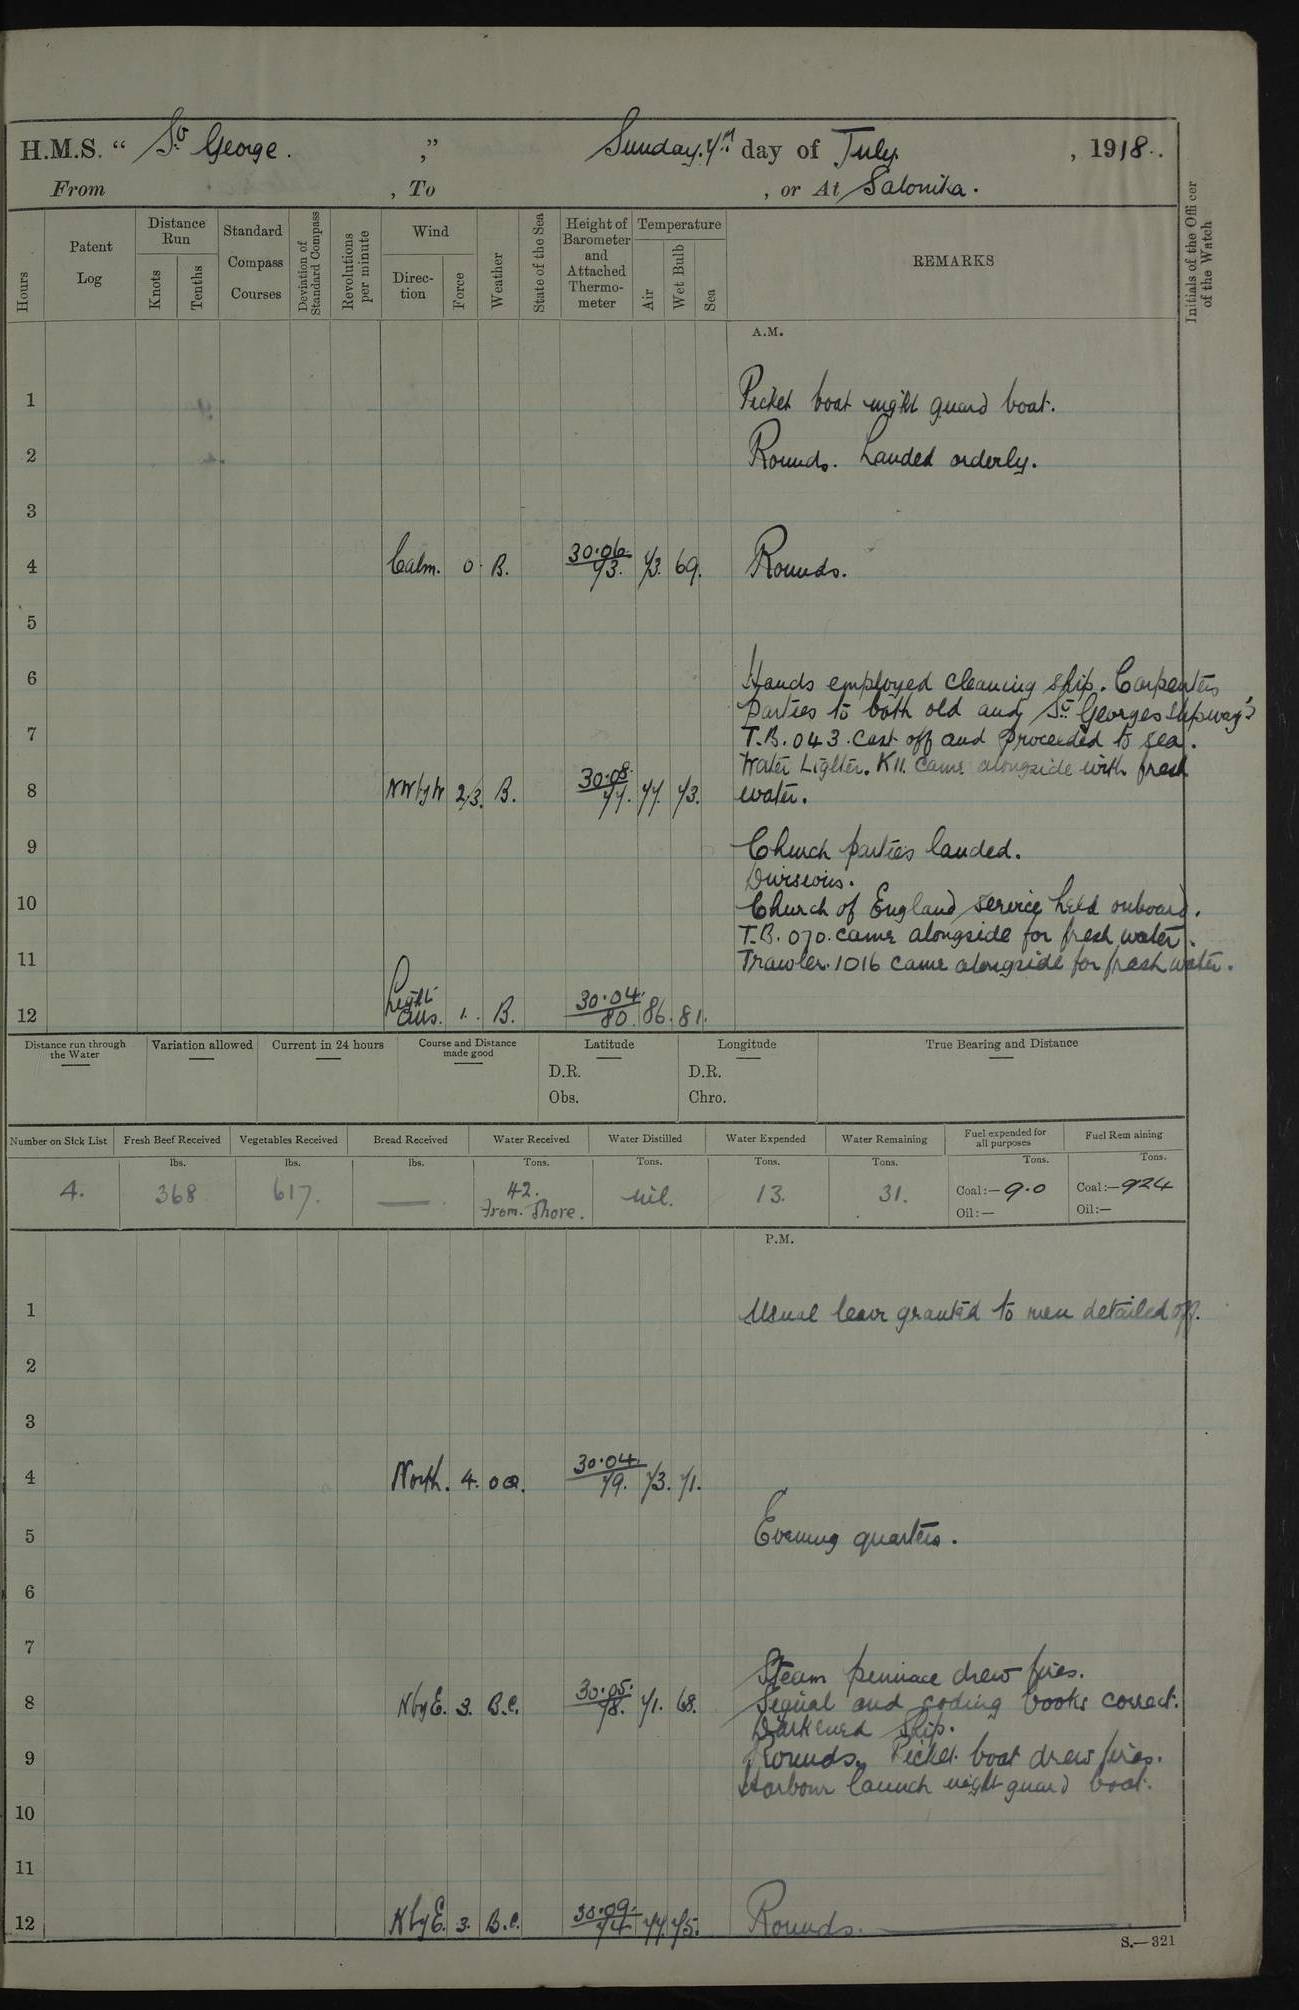 H.M.S. “ St George. ,” Sunday. 7th day of July , 1918.
From , To , or At Salonika.
Hours
Patent Log
Distance Run
Knots
Tenths
Standard Compass Courses
Deviation of Standard Compass
Revolutions per minute
Wind
Direction
Force
Weather
State of the Sea
Height of Barometer and Attached Thermometer
Temperature
Air
Wet Bulb
Sea
REMARKS
Initials of the Officer of the Watch
A.M.
1 Picket boat night guard boat.
2 Rounds. Landed orderly.
3
4 Calm. 0. B. 30.06. 73. 73. 69. Rounds.
5
6 Hands employed cleaning ship. Carpenters
parties to both old and St Georges slipway's
7 T.B. 043. cast off and proceeded to sea.
Water Lighter. K11. came alongside with fresh
8 NWbyW 2.3. B. 30.08. 77. 77. 73. water.
9 Church parties landed.
Divisions.
10 Church of England service held onboard.
T.B. 070. came alongside for fresh water.
11 Trawler. 1016 came alongside for fresh water.
12 Light airs. 1. B. 30.04. 80. 86. 81.
Distance run through the Water
Variation allowed
Current in 24 hours
Course and Distance made good
Latitude
D.R.
Obs.
Longitude
D.R.
Chro.
True Bearing and Distance
Number on Sick List
Fresh Beef Received
Vegetables Received
Bread Received
Water Received
Water Distilled
Water Expended
Water Remaining
Fuel expended for all purposes
Fuel Remaining
lbs. lbs. lbs. Tons. Tons. Tons. Tons. Tons. Tons.
4. 368 617. — 42. From. Shore. nil. 13. 31. Coal:— 9.0 Coal:— 924
Oil:— Oil:—
P.M.
1 Usual leave granted to men detailed off.
2
3
4 North. 4. 30.04. 79. 73. 71.
5 Evening quarters.
6
7
Steam pinnace drew fires.
8 NbyE. 3. B.C. 30.05. 78. 71. 68. Signal and coding books correct.
Darkened ship.
9 Rounds. Picket boat drew fires.
Harbour launch night guard boat.
10
11
12 NbyE. 3. B.C. 30.09. 74 77. 75. Rounds.
S.—321